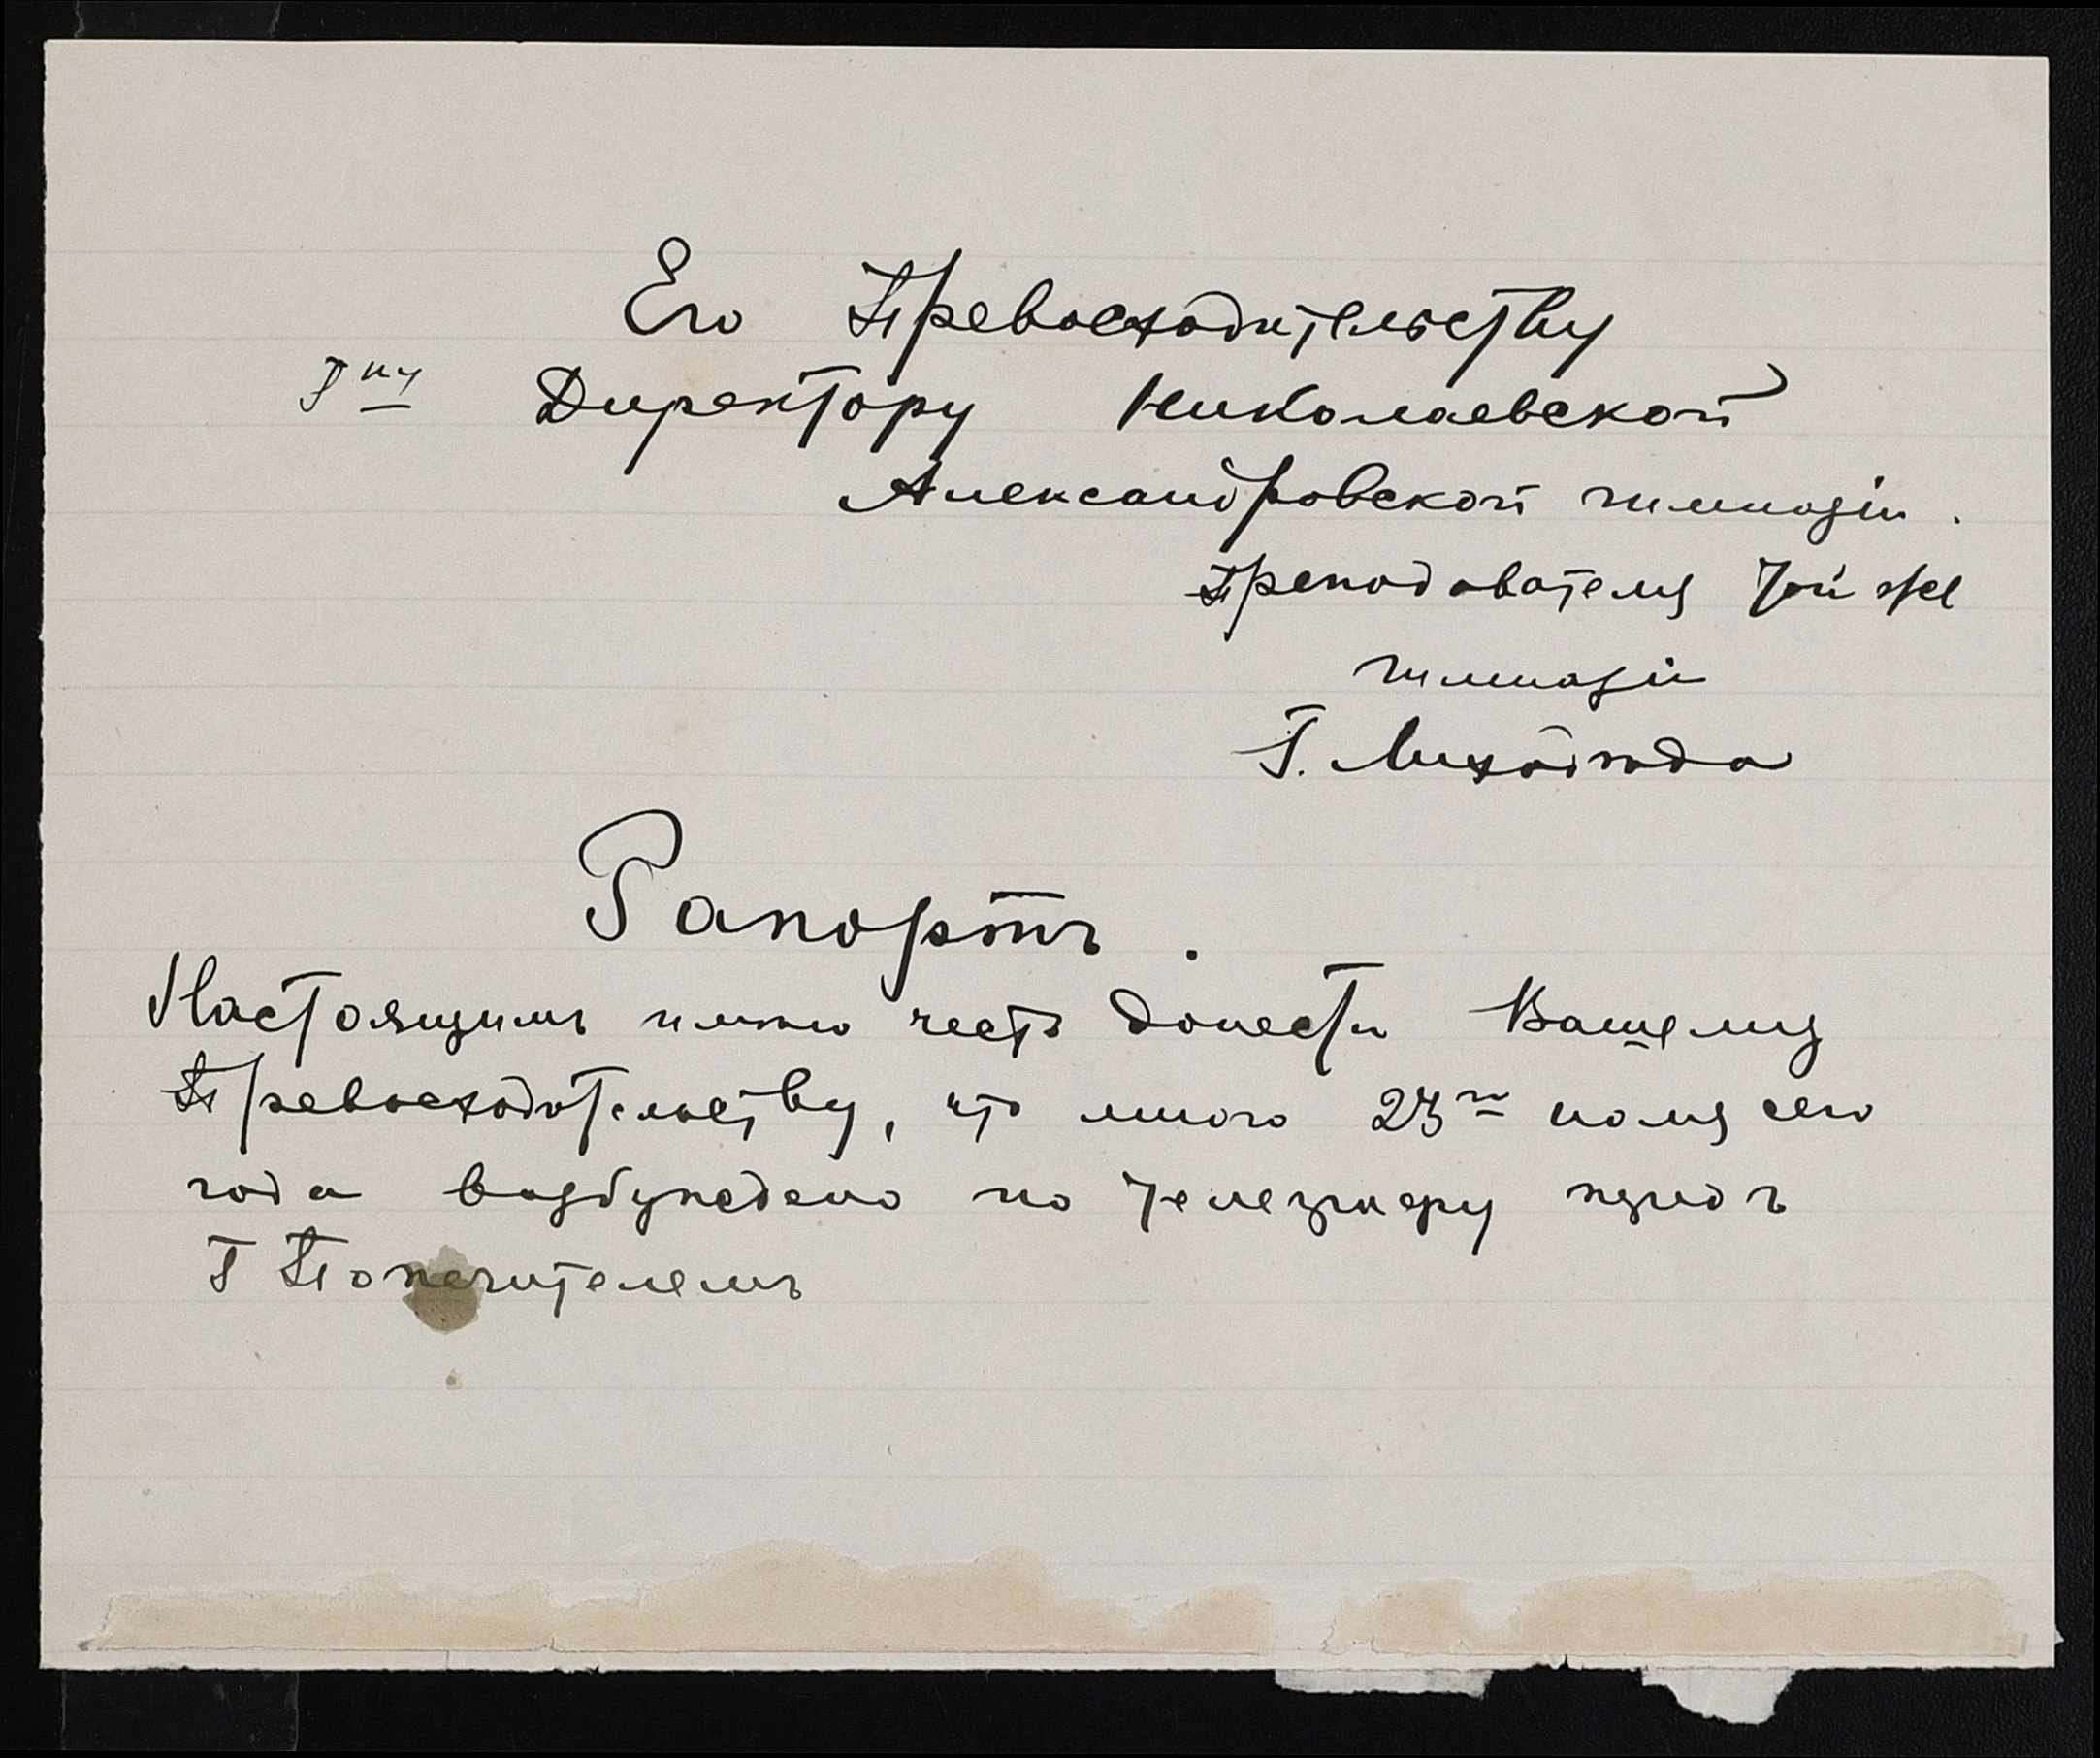 Его Превосходительству
Гну Директору Николаевской
Александровской гимназіи.
преподавателя той же
гимназіи
Г. Лиходзода
Рапортъ.
Настоящимъ имѣю честь донести Вашему
Превосходительству, что мною 23го іюля сего
года возбуждено по телеграфу предъ
Г Попечителемъ